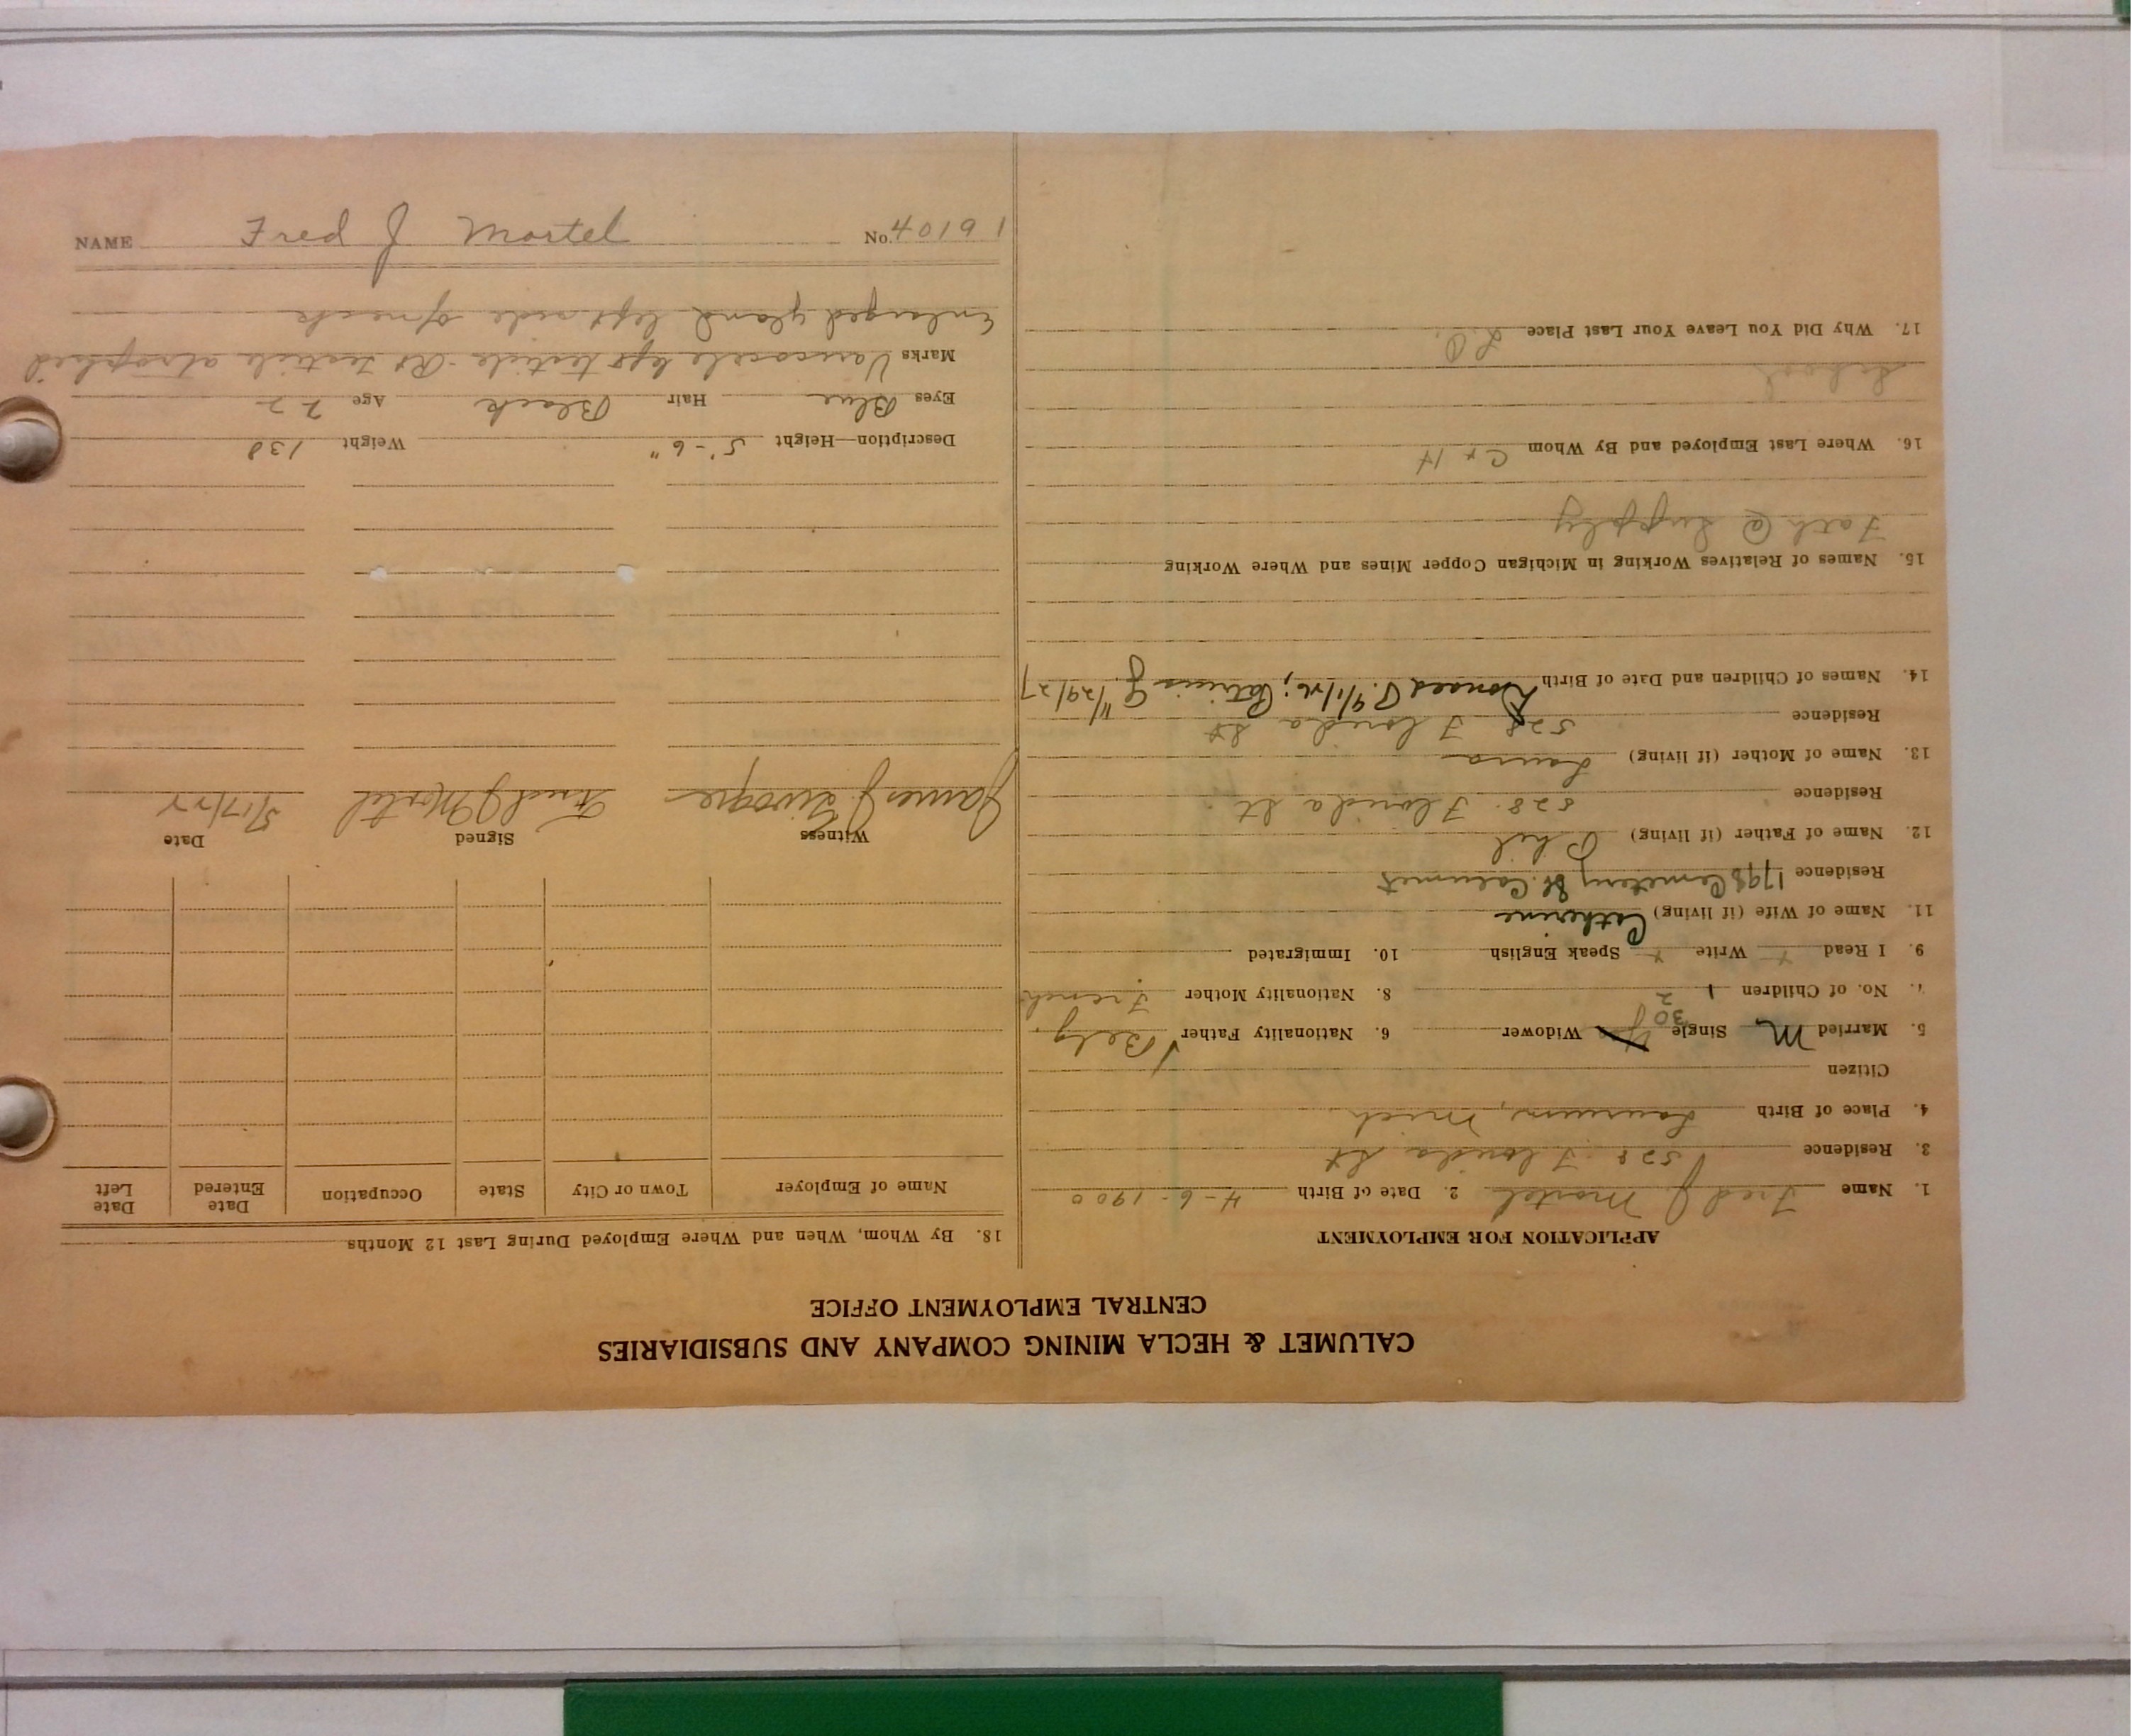 CALUMET & HECLA MINING COMPANY AND SUBSIDIARIES
CENTRAL EMPLOYMENT OFFICE
APPLICATION FOR EMPLOYMENT
1. Name Fred J Mortel 2. Date of Birth 4-6-1900
3. Residence 528 Florida St
4. Place of Birth Laurium, Mich
Citizen
5. Married M Single Widower 6. Nationality Father Belg.
30
7. No. of Children 1 2 8. Nationality Mother French
9. I Read + Write + Speak English 10. Immigrated
11. Name of Wife (if living) Catherine
Residence 1798 Cemetery St. Calumet
12. Name of Father (if living) Phil
Residence 528 Florida St.
13. Name of Mother (if living) Laura
Residence 528 Florida St
14. Names of Children and Date of Birth Donald P. 9/1/26; Patricia J. 11/29/27
15. Names of Relatives Working in Michigan Copper Mines and Where Working
Fath @ Supply
16. Where Last Employed and By Whom C + H
School
17. Why Did You Leave Your Last Place L.O.
18. By Whom, When and Where Employed During Last 12 Months
Name of Employer Town or City State Occupation Date Entered Date Left
Witness Signed Date
James J. Fred J Mortel 5/17/22
Description—Height 5'-6" Weight 138
Eyes Blue Hair Black Age 22
Marks Varicocele left testicle - Rt testicle atrophied
Enlarged gland left side of neck
NAME Fred J Mortel No. 40191